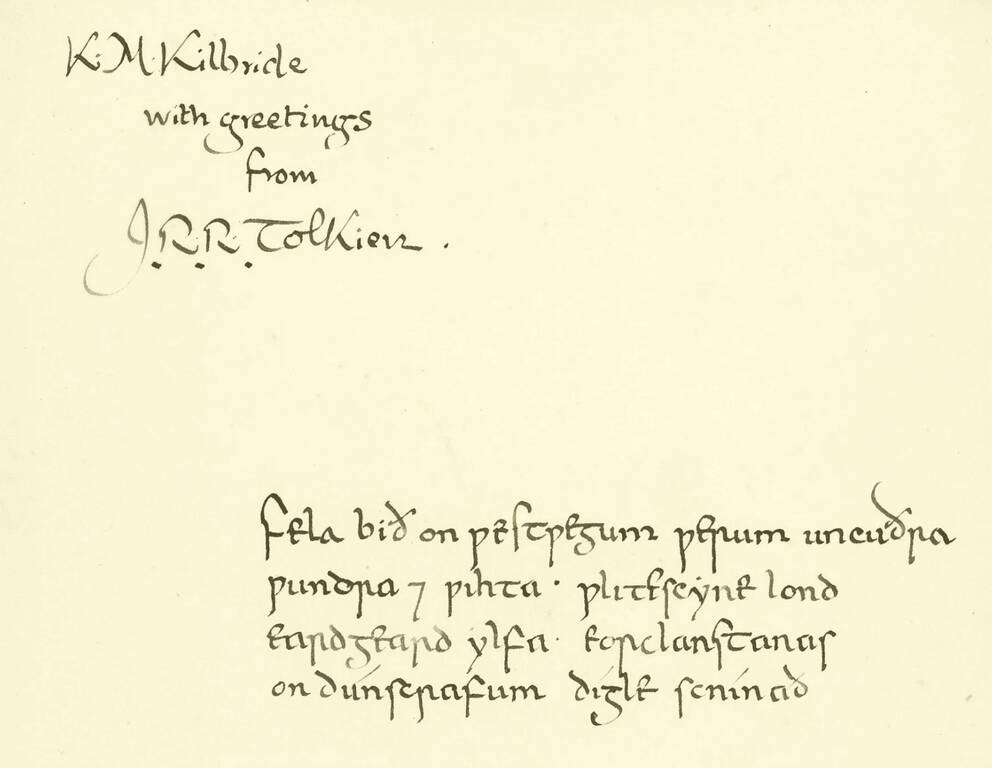 K. M. Kilbride
with greetings
from
J. R. R. Tolkien .
Fela bið on ƿestƿegum ƿerum uncuðra
ƿundra ⁊ ƿihta · ƿlitescýne lond
eardgeard ylfa · eorclanstanas
on dúnscrafum dígle scínað